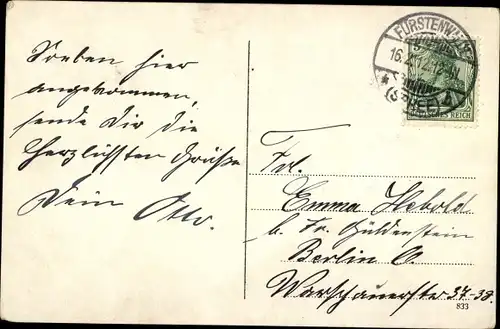 Soeben hier
angekommen,
sende Dir die
herzlichsten Grüße
Dein Otto.
FÜRSTENWALDE
16.
(SPREE)
DEUTSCHES REICH
Frl.
Emma Hebold
b. Fr. Güldenstein
Berlin O
Warschauerstr 37-38.
833